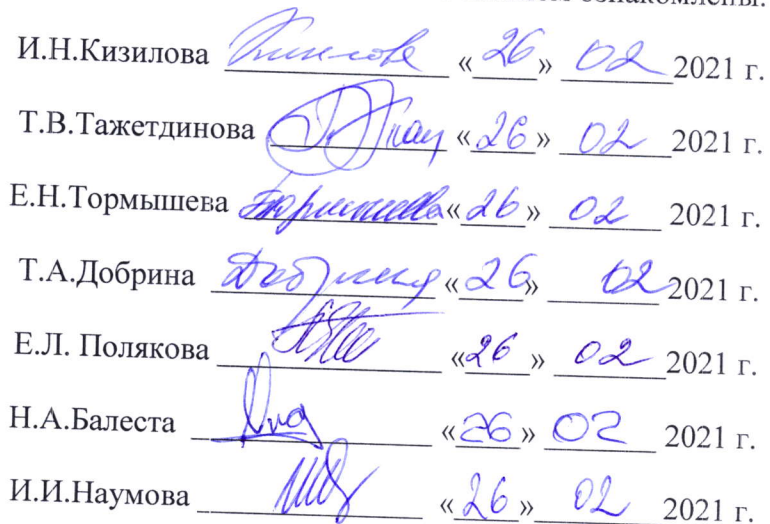 ознакомлены.
И.Н.Кизилова «26» 02 2021 г.
Т.В.Тажетдинова «26» 02 2021 г.
Е.Н.Тормышева «26» 02 2021 г.
Т.А.Добрина «26» 02 2021 г.
Е.Л. Полякова «26» 02 2021 г.
Н.А.Балеста «26» 02 2021 г.
И.И.Наумова «26» 02 2021 г.